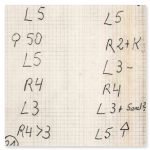 L5
9 50
L5
R4
L3
R4>3
21
L5
R2+K
L3-
R4
L3+
L5 ↑